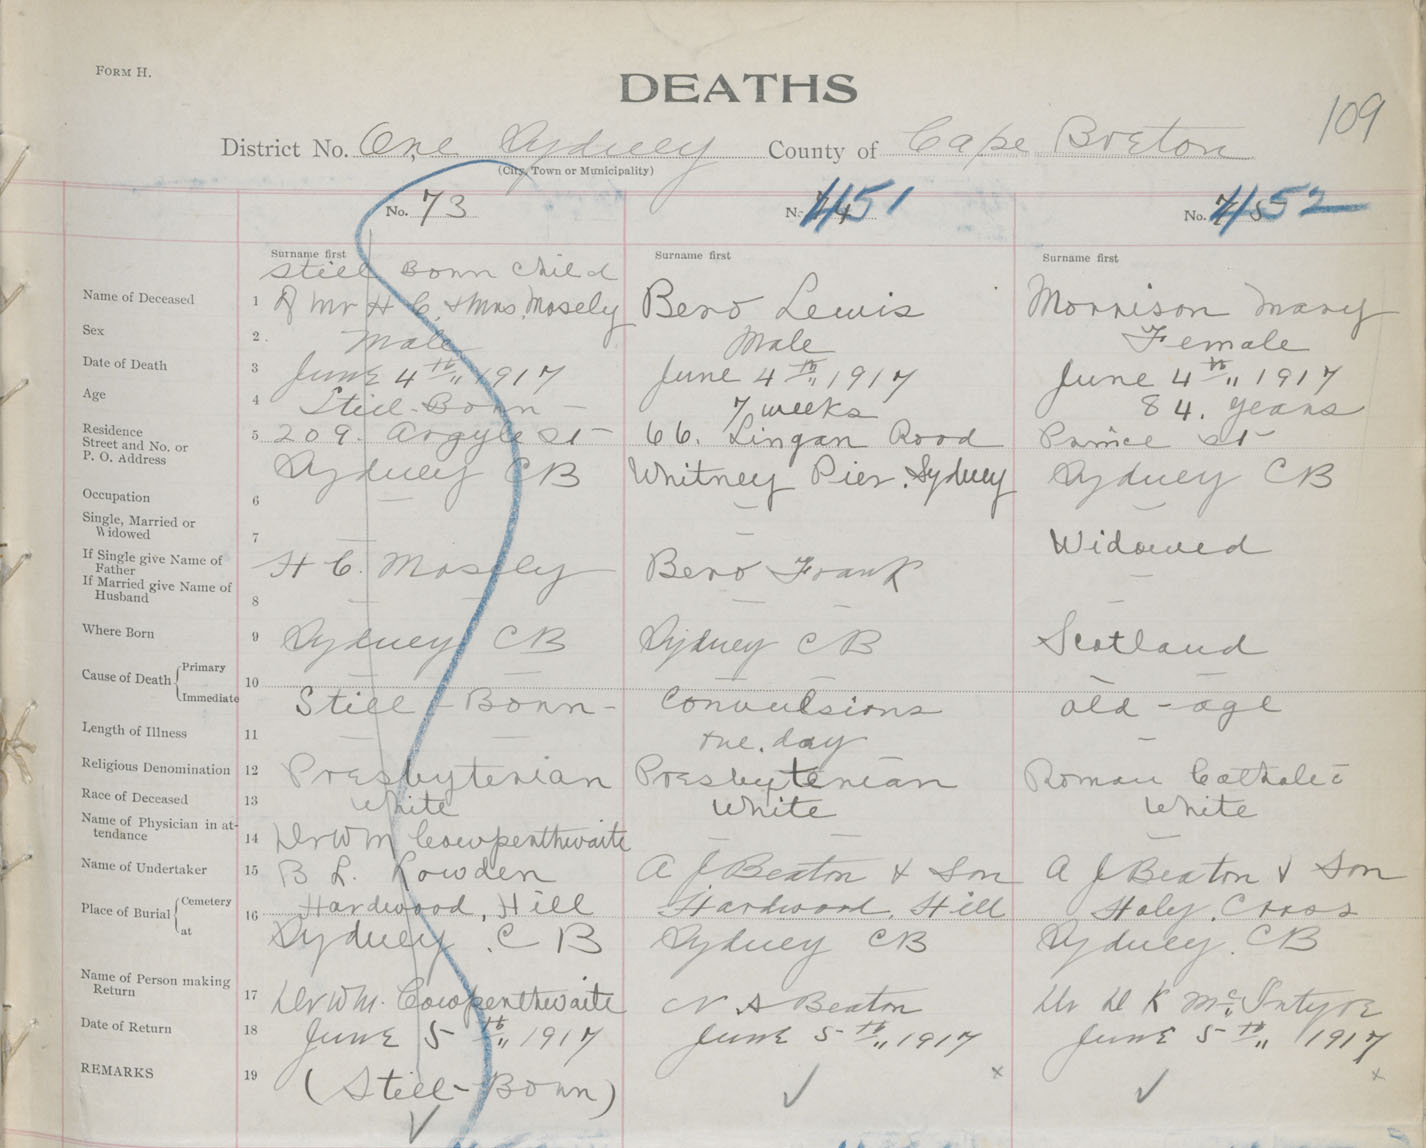 FORM H.
DEATHS
109
District No. One Sydney County of Cape Breton
(City, Town or Municipality)
No. 73
No. 451
No. 452
Surname first
Surname first
Surname first
Name of Deceased 1 Still Born Child Bero Lewis Morrison Mary
of Mr H C. & Mrs. Mosely
Sex 2. Male Male Female
Date of Death 3 June 4th,, 1917 June 4th,, 1917 June 4th,, 1917
Age 4 Still-Born - 7 weeks 84. years
Residence
Street and No. or 5 209. Argyle St 66. Lingan Road Prince St
P. O. Address Sydney CB Whitney Pier. Sydney Sydney CB
Occupation 6 — — —
Single, Married or
Widowed 7 — — Widowed
If Single give Name of
Father H C. Mosely Bero Frank —
If Married give Name of
Husband 8 — — — — —
Where Born 9 Sydney CB Sydney CB Scotland
Cause of Death { Primary — — — — — —
Immediate 10 Still-Born - Convulsions old-age
Length of Illness 11 — — one. day —
Religious Denomination 12 Presbyterian Presbyterian Roman Catholic
Race of Deceased 13 White White White
Name of Physician in at-
tendance 14 Dr Wm Cowpenthwaite — — —
Name of Undertaker 15 B L. Lowden A J Beaton & Son A J Beaton & Son
Place of Burial { Cemetery Hardwood, Hill Hardwood. Hill Holy. Cross
at 16 Sydney. C B Sydney CB Sydney. CB
Name of Person making
Return 17 Dr Wm. Cowpenthwaite N A Beaton Dr D K McIntyre
Date of Return 18 June 5th,, 1917 June 5th,, 1917 June 5th,, 1917
REMARKS 19 (Still-Born) ✓ x ✓ x
✓